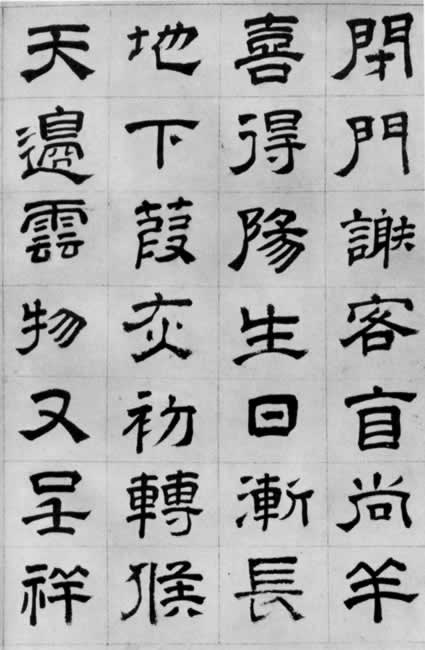 閉門謝客盲尚羊
喜得陽生日漸長
地下葭灰初轉候
天邊雲物又呈祥